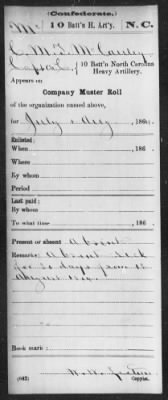 (Confederate.)
M 10 Batt'n H. Art'y. N. C.
C. M. T. McCauley
Capt Co. 10 Batt'n North Carolina
Heavy Artillery.
Appears on
Company Muster Roll
of the organization named above,
for July & Aug, 1864.
Enlisted:
When , 186 .
Where
By whom
Period
Last paid:
By whom
To what time , 186 .
Present or absent Absent
Remarks: Absent sick
for 30 days from 15
August 1864.
Book mark:
(642) Copyist.